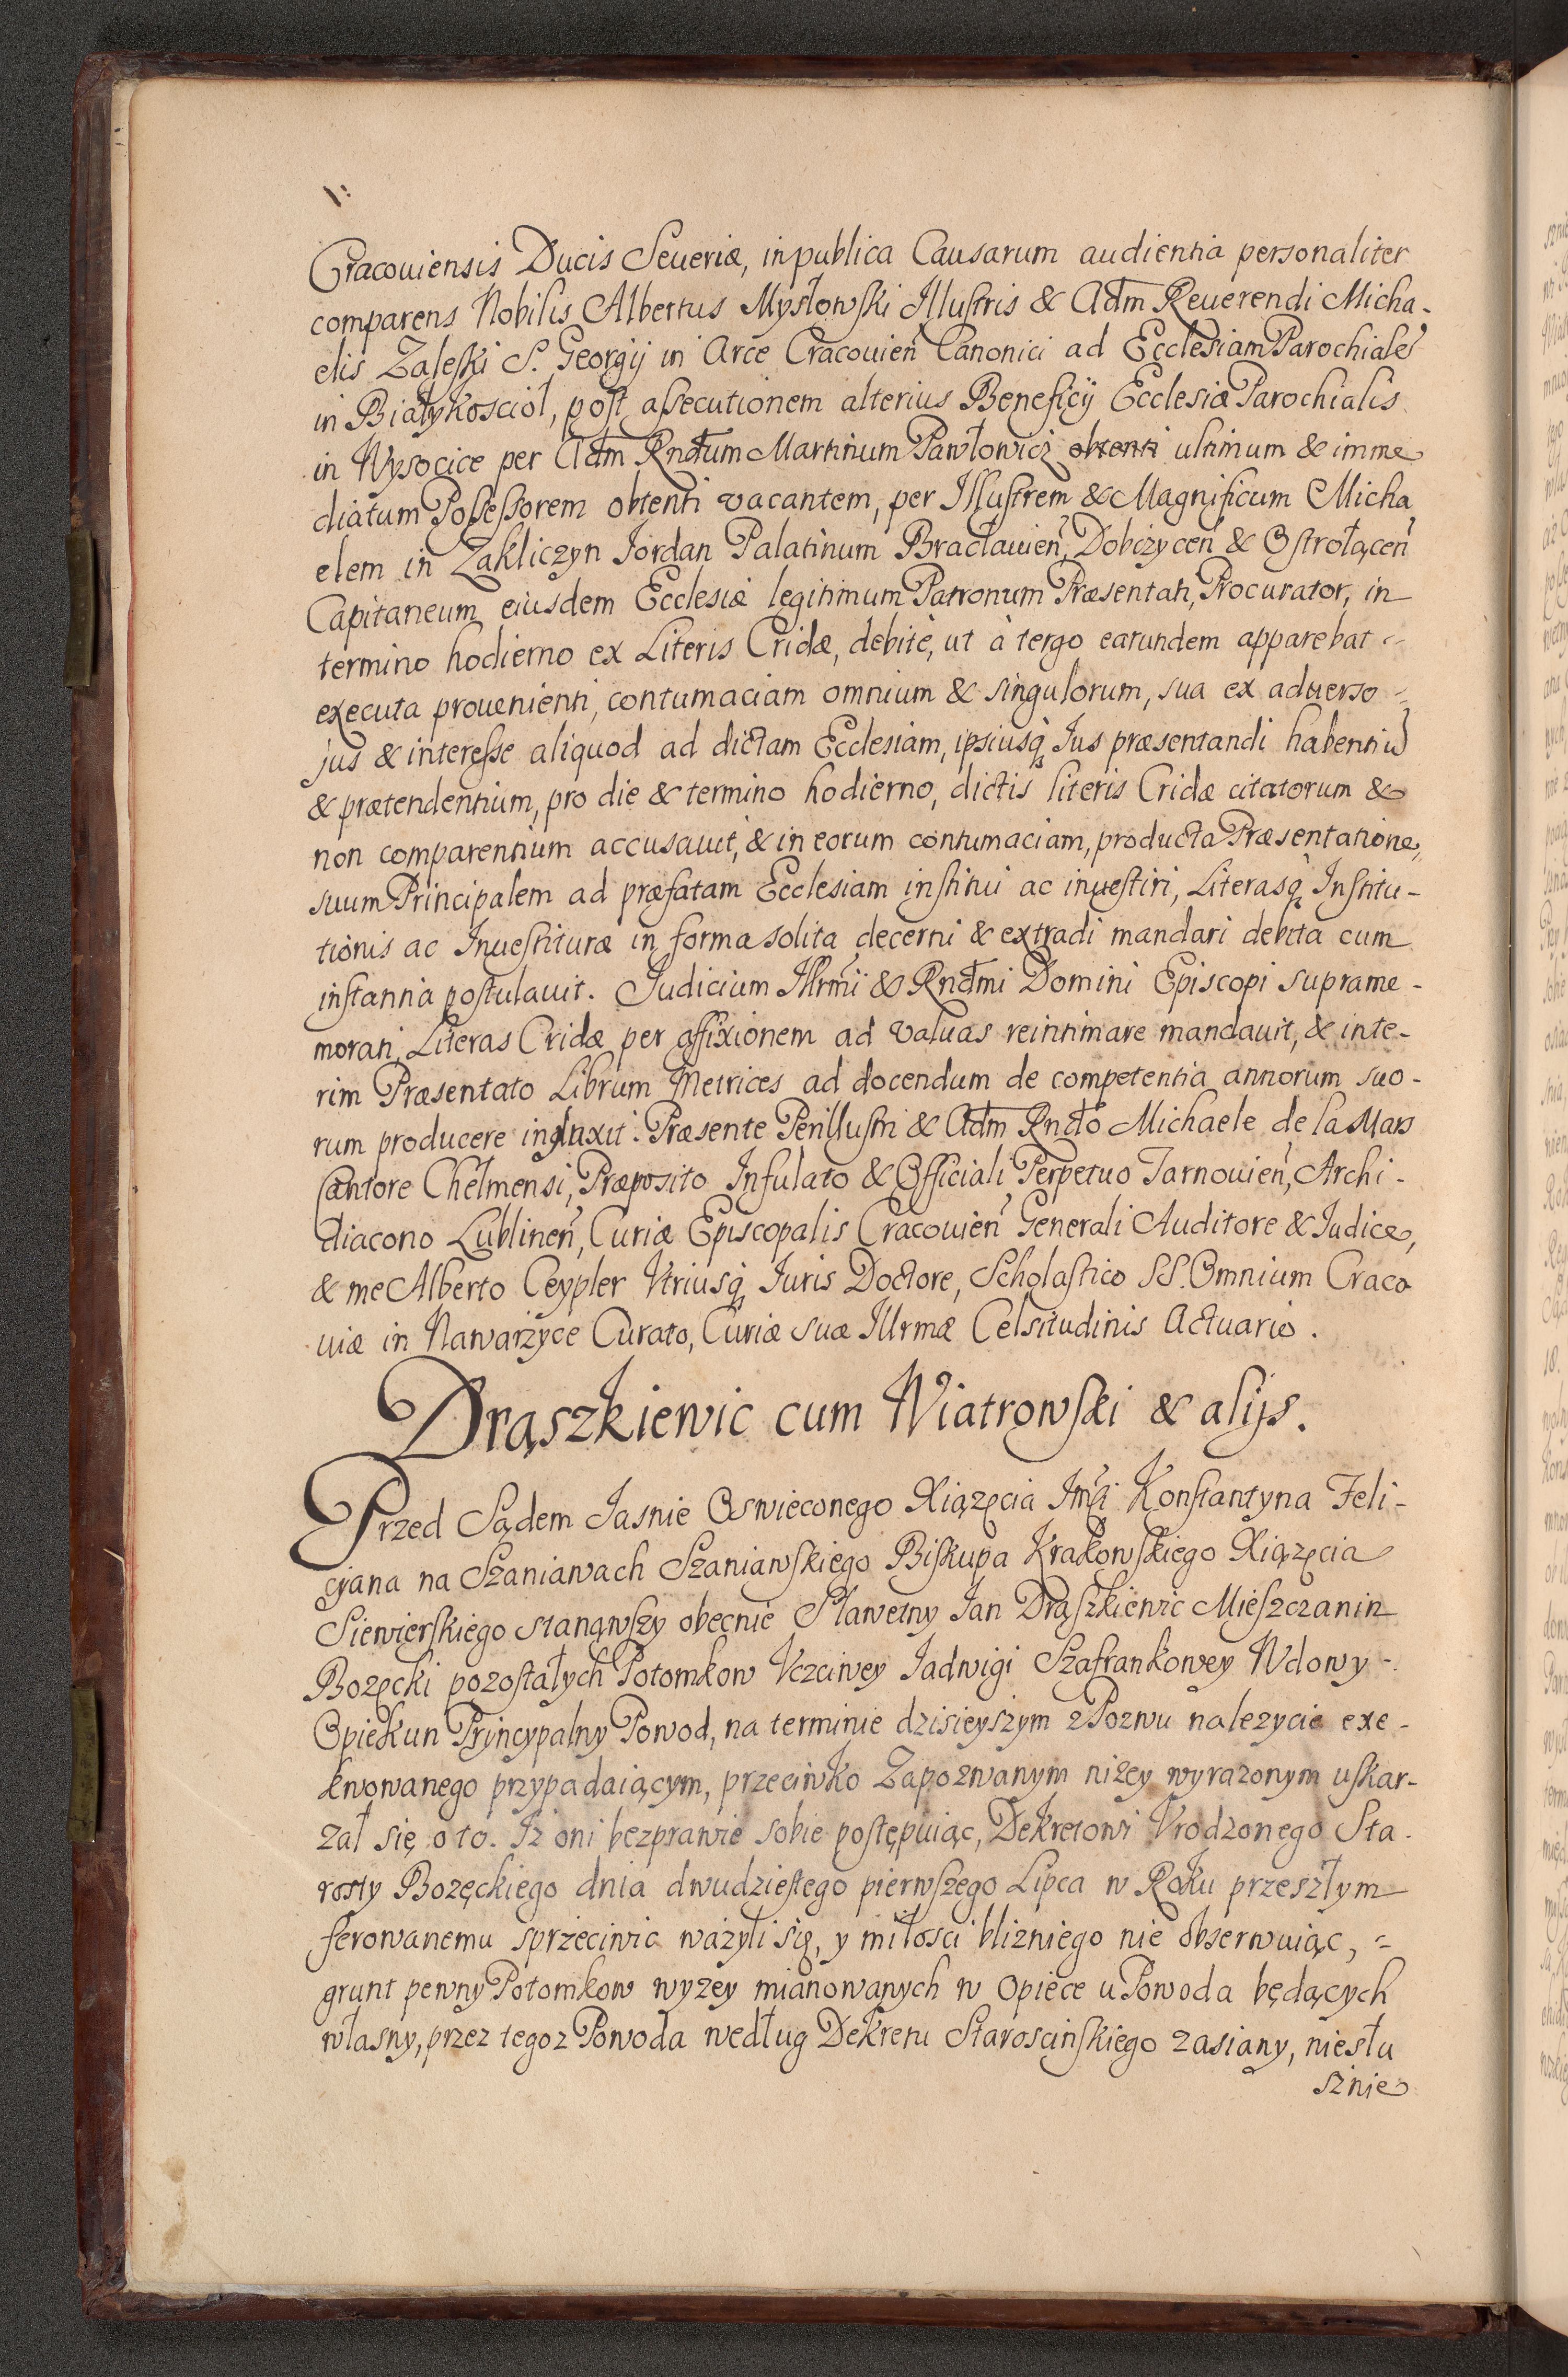 Cracouiensis Ducis Seueriæ, in publica Causarum audientia personaliter
comparens Nobilis Albertus Mysłowski Illustris & Adm Reuerendi Micha-
elis Zaleski S. Georgij in Arce Cracouien Canonici ad Ecclesiam Parochiale
in Białykosciół, post assecutionem alterius Beneficij Ecclesiæ Parochialis
in Wysocice per Adm Rndum Martinum Pawłowicz obtenti ultimum & imme
diatum Possessorem obtenti vacantem, per Illustrem & Magnificum Micha
elem in Zakliczyn Jordan Palatinum Bracłauien, Dobczycen & Ostrołącen
Capitaneum eiusdem Ecclesiæ legitimum Patronum Præsentati, Procurator, in
termino hodierno ex Literis Cridæ, debitè, ut à tergo earundem apparebat
executa prouenienti, contumaciam omnium & singulorum, sua ex aduerso
jus & interesse aliquod ad dictam Ecclesiam, ipsiusq Jus præsentandi habentiu
& prætendentium, pro die & termino hodierno, dictis literis Cridæ citatorum &
non comparentium accusauit, & in eorum contumaciam, producta Præsentatione,
suum Principalem ad præfatam Ecclesiam institui ac inuestiri, Literasq Institu-
tionis ac Inuestituræ in forma solita decerni & extradi mandari debita cum
instantia postulauit. Judicium Illrmi & Rndmi Domini Episcopi suprame-
morati, Literas Cridæ per affixionem ad valuas reintimare mandauit, & inte-
rim Præsentato Librum Metrices ad docendum de competentia annorum suo-
rum producere iniunxit. Præsente Perillustri & Adm Rndo Michaele de la Mars
Cantore Chelmensi, Præposito Infulato & Officiali Perpetuo Tarnouien, Archi-
diacono Lublinen, Curiæ Episcopalis Cracouien Generali Auditore & Judice,
& me Alberto Ceypler Vtriusq Juris Doctore, Scholastico SS. Omnium Craco
uiæ in Nawarzyce Curato, Curiæ suæ Illrmæ Celsitudinis Actuario.
Drąszkiewic cum Wiatrowski & alijs.
Przed Sądem Jasnie Oswieconego Xiązęcia Jmći Konstantyna Feli-
cyana na Szaniawach Szaniawskiego Biskupa Krakowskiego Xiązęcia
Siewierskiego stanąwszy obecnie Sławetny Jan Drąszkiewic Mieszczanin
Bozęcki pozostałych Potomkow Vczciwey Jadwigi Szafrankowey Wdowy
Opiekun Pryncypalny Powod, na terminie dzisieyszym z Pozwu nalezycie exe-
kwowanego przypadaiącym, przeciwko Zapozwanym nizey wyrazonym uskar-
zał się o to. Iz oni bezprawie sobie postępuiąc, Dekretowi Vrodzonego Sta-
rosty Bozęckiego dnia dwudziestego pierwszego Lipca w Roku przeszłym
ferowanemu sprzeciwic wazyli się, y miłosci blizniego nie obserwuiąc,
grunt pewny Potomkow wyzey mianowanych w Opiece u Powoda będących
własny, przez tegoz Powoda według Dekretu Staroscinskiego zasiany, niesłu
sznie